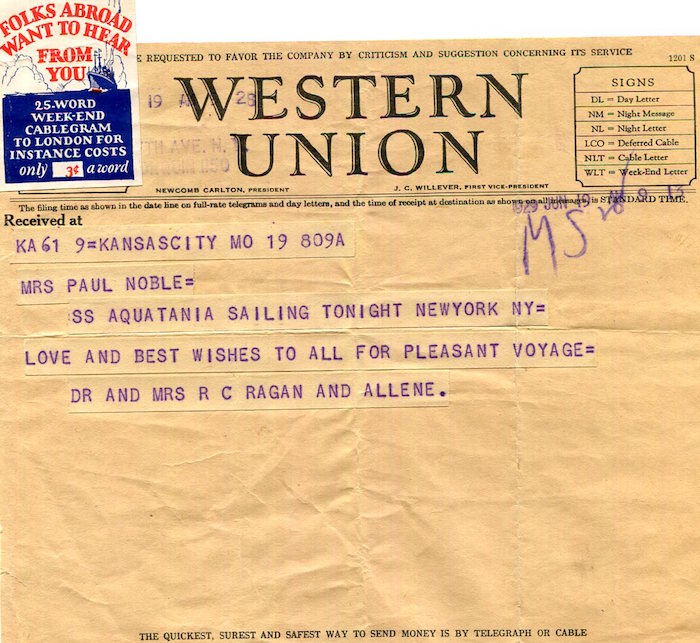 FOLKS ABROAD
WANT TO HEAR
FROM
YOU
25-WORD
WEEK-END
CABLEGRAM
TO LONDON FOR
INSTANCE COSTS
only 3¢ a word
E REQUESTED TO FAVOR THE COMPANY BY CRITICISM AND SUGGESTION CONCERNING ITS SERVICE
1201 S
19 A 28
WESTERN
UNION
TH AVE. N.Y.
NEWCOMB CARLTON, PRESIDENT
J. C. WILLEVER, FIRST VICE-PRESIDENT
SIGNS
DL = Day Letter
NM = Night Message
NL = Night Letter
LCO = Deferred Cable
NLT = Cable Letter
WLT = Week-End Letter
The filing time as shown in the date line on full-rate telegrams and day letters, and the time of receipt at destination as shown on all messages, is STANDARD TIME.
Received at
1929 JUN 19 AM 9 13
MS
KA61 9=KANSASCITY MO 19 809A
MRS PAUL NOBLE=
SS AQUATANIA SAILING TONIGHT NEWYORK NY=
LOVE AND BEST WISHES TO ALL FOR PLEASANT VOYAGE=
DR AND MRS R C RAGAN AND ALLENE.
THE QUICKEST, SUREST AND SAFEST WAY TO SEND MONEY IS BY TELEGRAPH OR CABLE